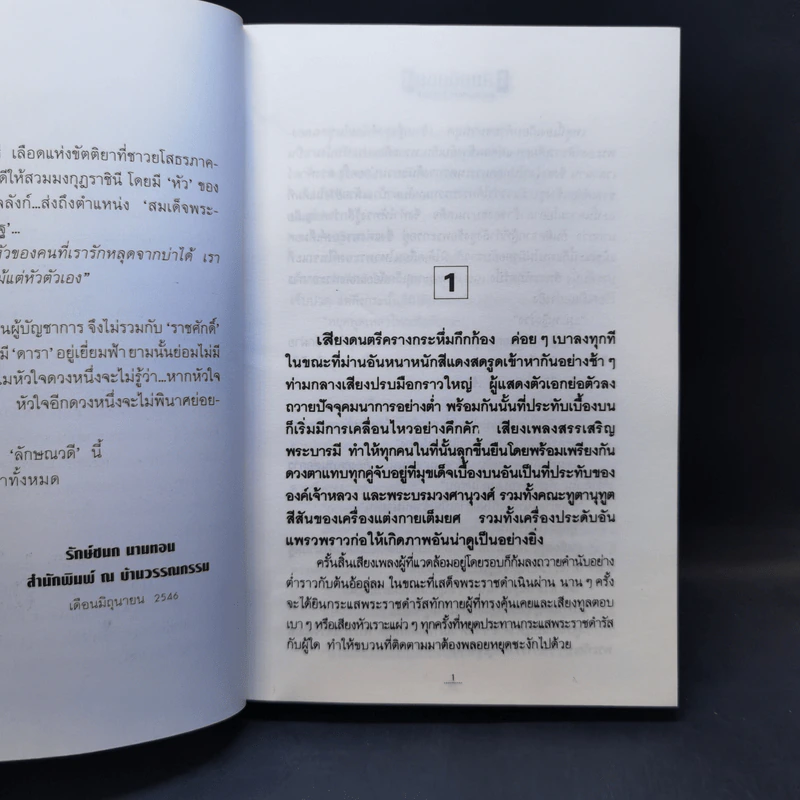 เลือดแห่งขัตติยาที่ชาวยโสธรภาค-
ดีให้สวมมงกุฎราชินี โดยมี ‘หัว’ ของ
ลังก์...ส่งถึงตำแหน่ง ‘สมเด็จพระ-
ฐ’...
หัวของคนที่เรารักหลุดจากบ่าได้ เรา
ม้แต่หัวตัวเอง”
นผู้บัญชาการ จึงไม่รวมกับ ‘ราชศักดิ์’
มี ‘ดารา’ อยู่เยี่ยมฟ้า ยามนั้นย่อมไม่มี
เมหัวใจดวงหนึ่งจะไม่รู้ว่า...หากหัวใจ
หัวใจอีกดวงหนึ่งจะไม่พินาศย่อย-
‘ลักษณวดี’ นี้
าทั้งหมด
รักษ์ชนก นามทอน
สำนักพิมพ์ ณ บ้านวรรณกรรม
เดือนมิถุนายน 2546
1
เสียงดนตรีครางกระหึ่มกึกก้อง ค่อย ๆ เบาลงทุกที
ในขณะที่ม่านอันหนาหนักสีแดงสดรูดเข้าหากันอย่างช้า ๆ
ท่ามกลางเสียงปรบมือกราวใหญ่ ผู้แสดงตัวเอกย่อตัวลง
ถวายปัจจุคมนาการอย่างต่ำ พร้อมกันนั้นที่ประทับเบื้องบน
ก็เริ่มมีการเคลื่อนไหวอย่างคึกคัก เสียงเพลงสรรเสริญ
พระบารมี ทำให้ทุกคนในที่นั้นลุกขึ้นยืนโดยพร้อมเพรียงกัน
ดวงตาแทบทุกคู่จับอยู่ที่มุขเด็จเบื้องบนอันเป็นที่ประทับของ
องค์เจ้าหลวง และพระบรมวงศานุวงศ์ รวมทั้งคณะทูตานุทูต
สีสันของเครื่องแต่งกายเต็มยศ รวมทั้งเครื่องประดับอัน
แพรวพราวก่อให้เกิดภาพอันน่าดูเป็นอย่างยิ่ง
ครั้นสิ้นเสียงเพลงผู้ที่แวดล้อมอยู่โดยรอบก็ก้มลงถวายคำนับอย่าง
ต่ำราวกับต้นอ้อลู่ลม ในขณะที่เสด็จพระราชดำเนินผ่าน นาน ๆ ครั้ง
จะได้ยินกระแสพระราชดำรัสทักทายผู้ที่ทรงคุ้นเคยและเสียงทูลตอบ
เบา ๆ หรือเสียงหัวเราะแผ่ว ๆ ทุกครั้งที่หยุดประทานกระแสพระราชดำรัส
กับผู้ใด ทำให้ขบวนที่ติดตามมาต้องพลอยหยุดชะงักไปด้วย
1